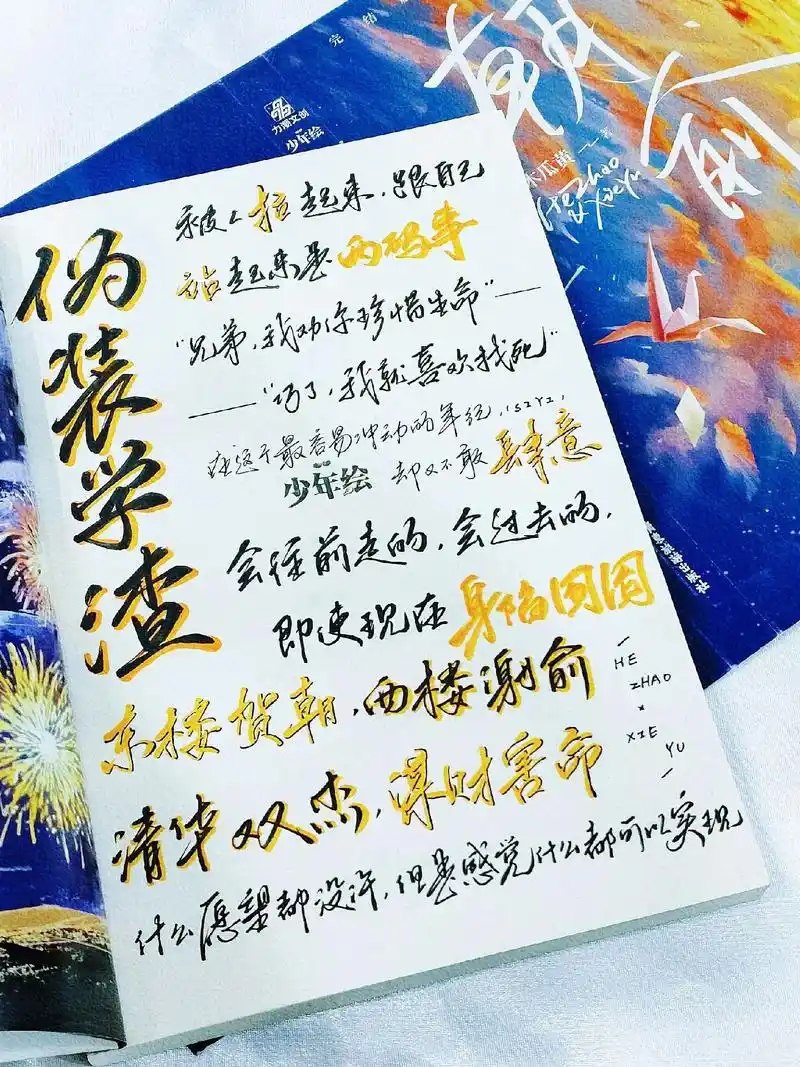 完结
力潮文创
少年绘
木瓜黄 著
HeZhao
& XieYu
伪装学渣
被人拉起来，跟自己
站起来是两码事
“兄弟，我劝你珍惜生命”——
——“巧了，我就喜欢找死”
在这个最容易冲动的年纪，
少年绘
却又不敢肆意
会往前走的，会过去的，
即使现在身陷囹圄
东楼贺朝，西楼谢俞
HE
ZHAO
×
XIE
YU
清华双杰，谋财害命
什么愿望都没许，但是感觉什么都可以实现